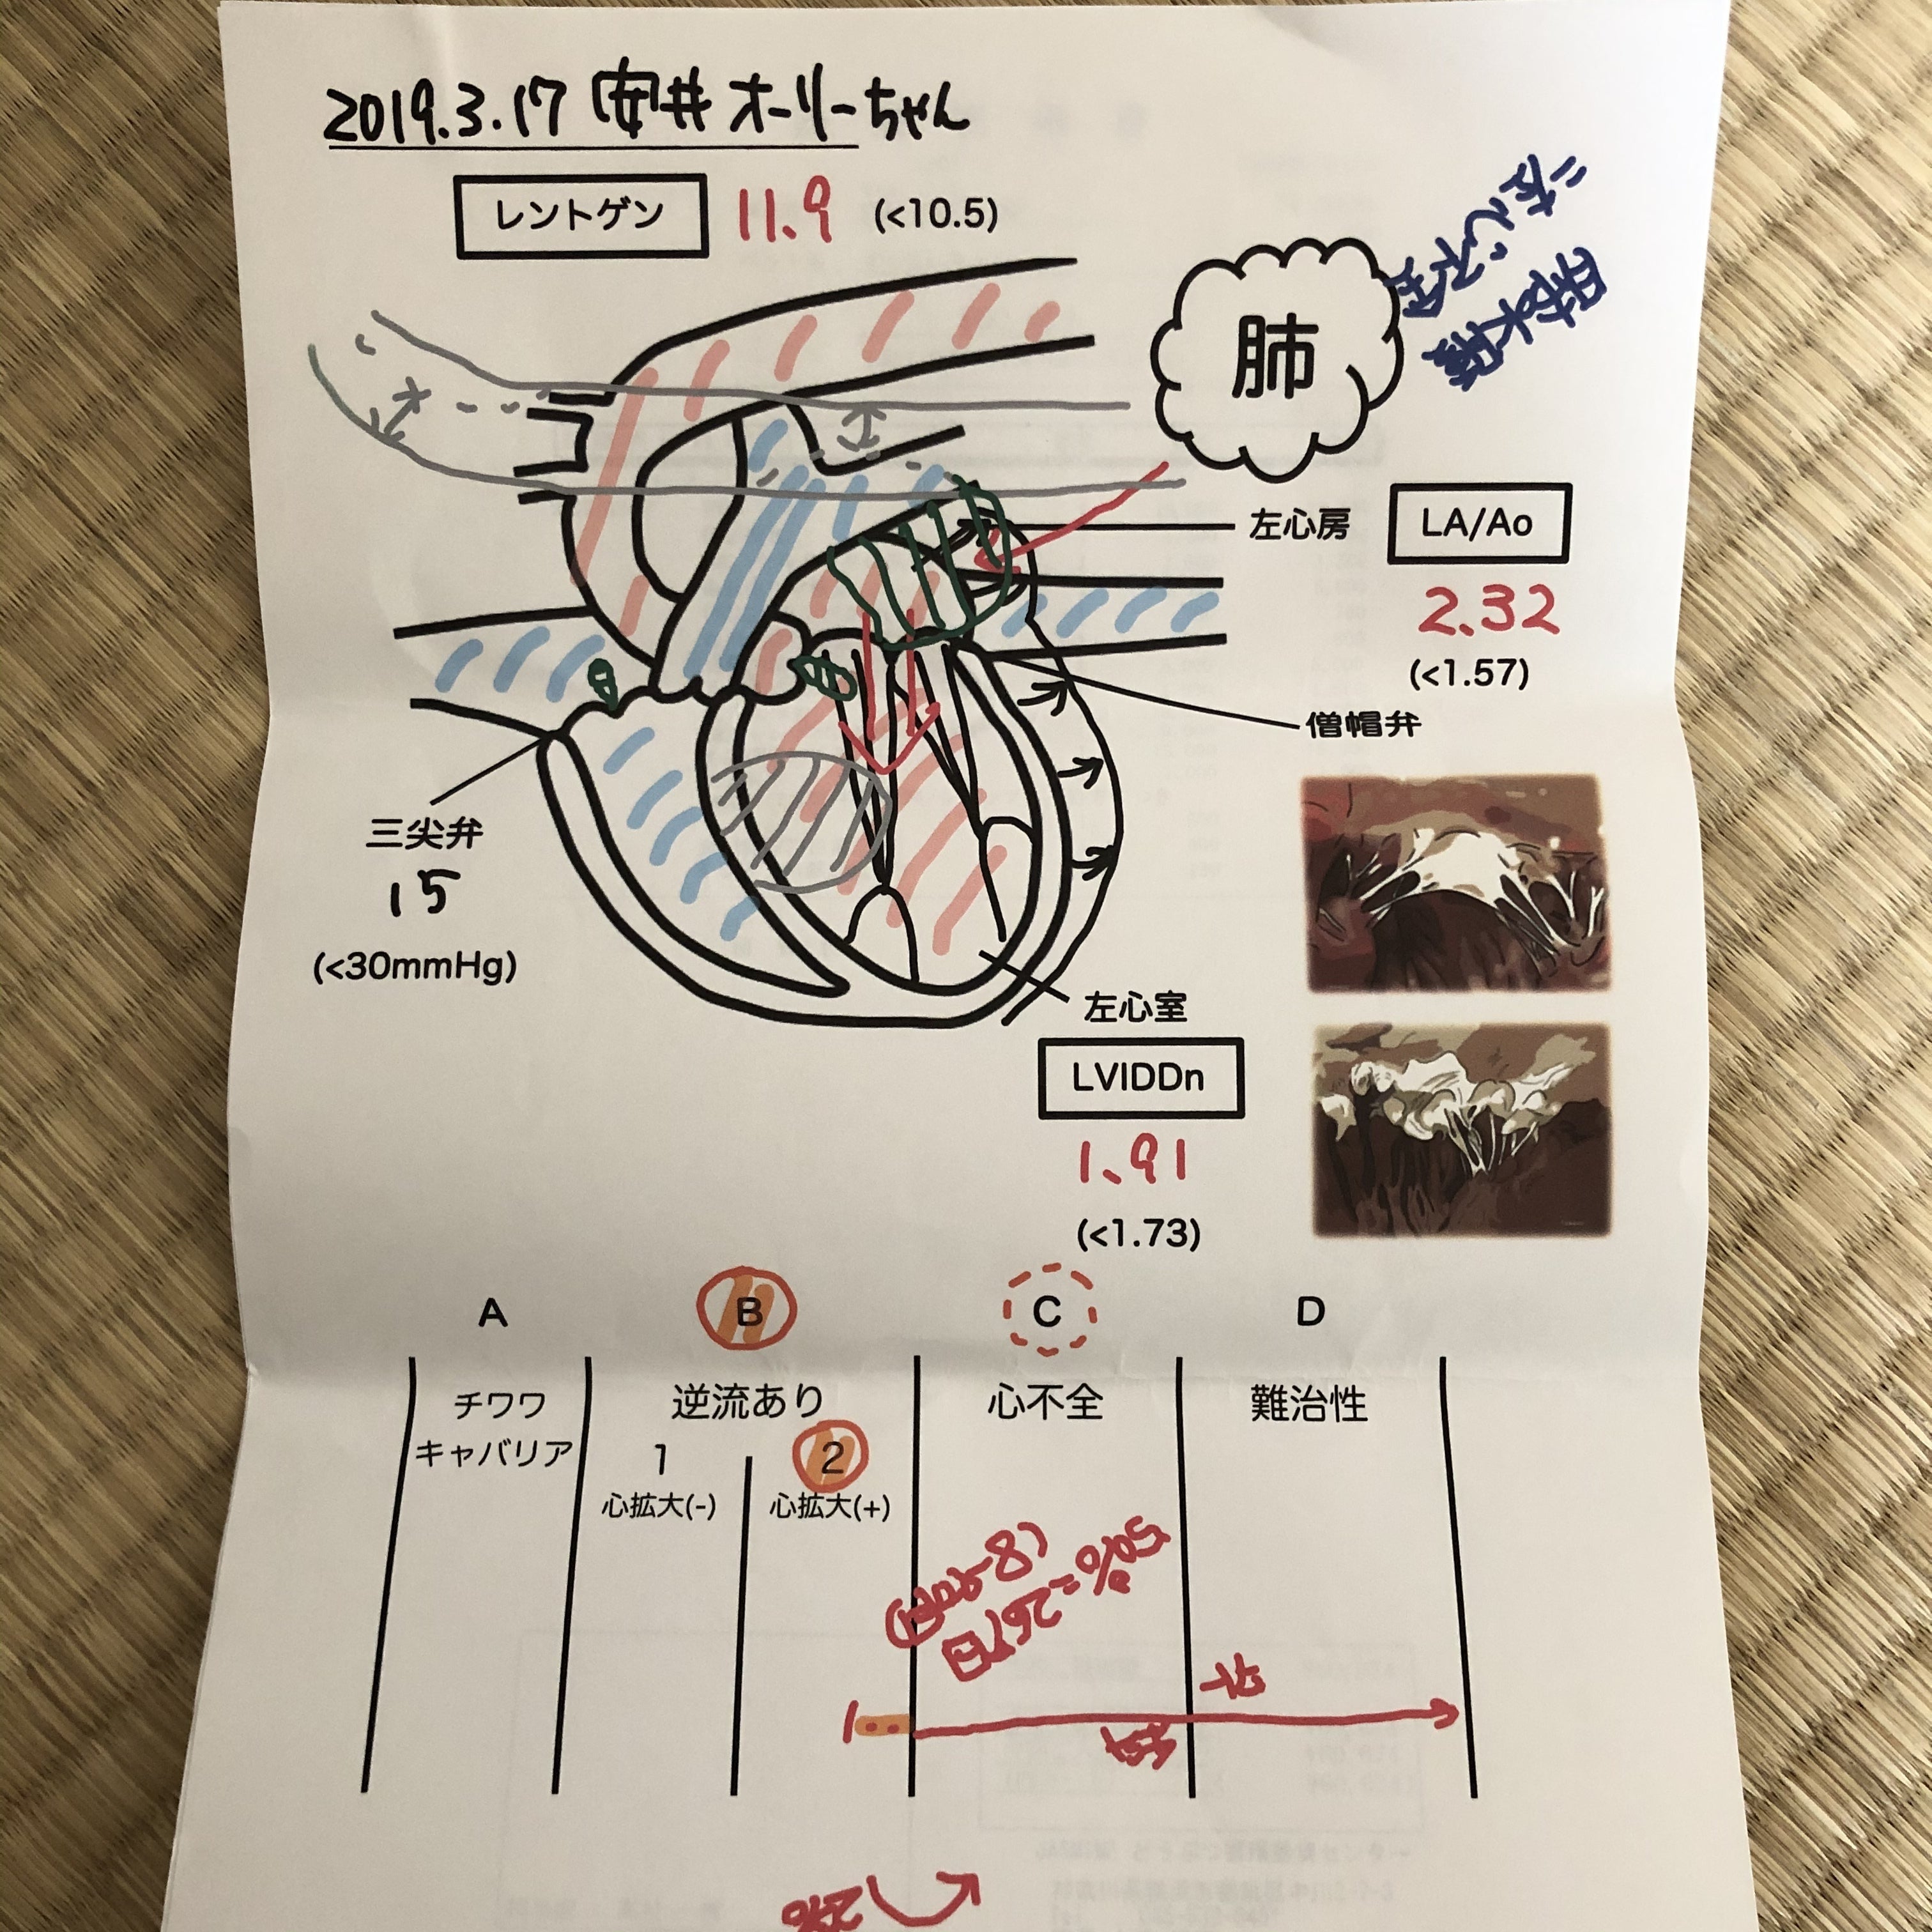 2019.3.17 安井 オーリーちゃん
レントゲン 11.9 (<10.5)
肺
左心房 LA/Ao
2.32
(<1.57)
僧帽弁
三尖弁
15
(<30mmHg)
左心室
LVIDDn
1.91
(<1.73)
A B C D
チワワ 逆流あり 心不全 難治性
キャバリア 1 2
心拡大(-) 心拡大(+)
50%=267日